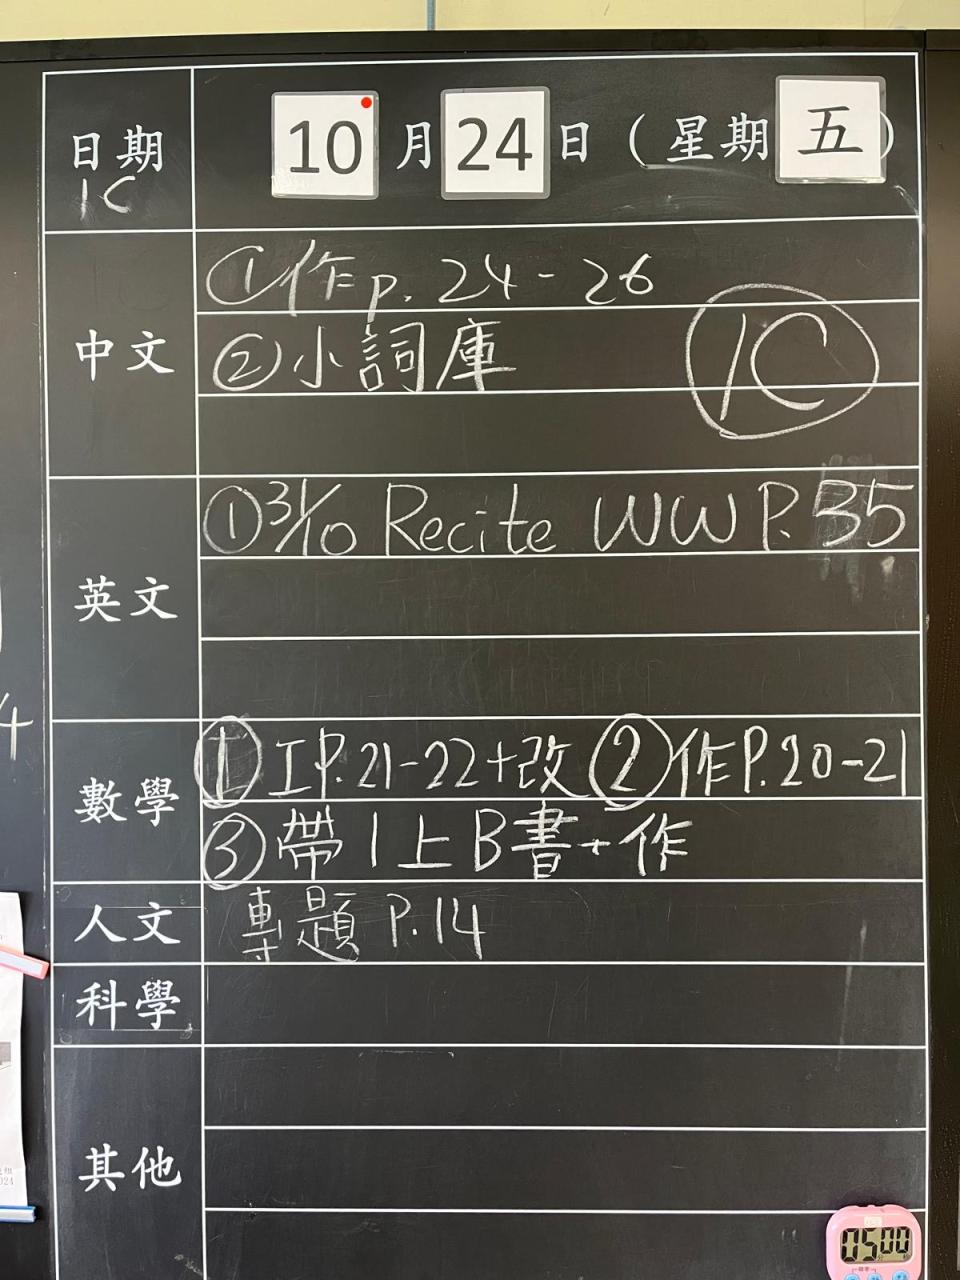 日期 10月24日(星期五)
1C
中文
①作p.24-26
②小詞庫
1C
英文
①31/10 Recite WW P.35
數學
①工P.21-22+改②作P.20-21
③帶1上B書+作
人文
專題 P.14
科學
其他
4
05 00